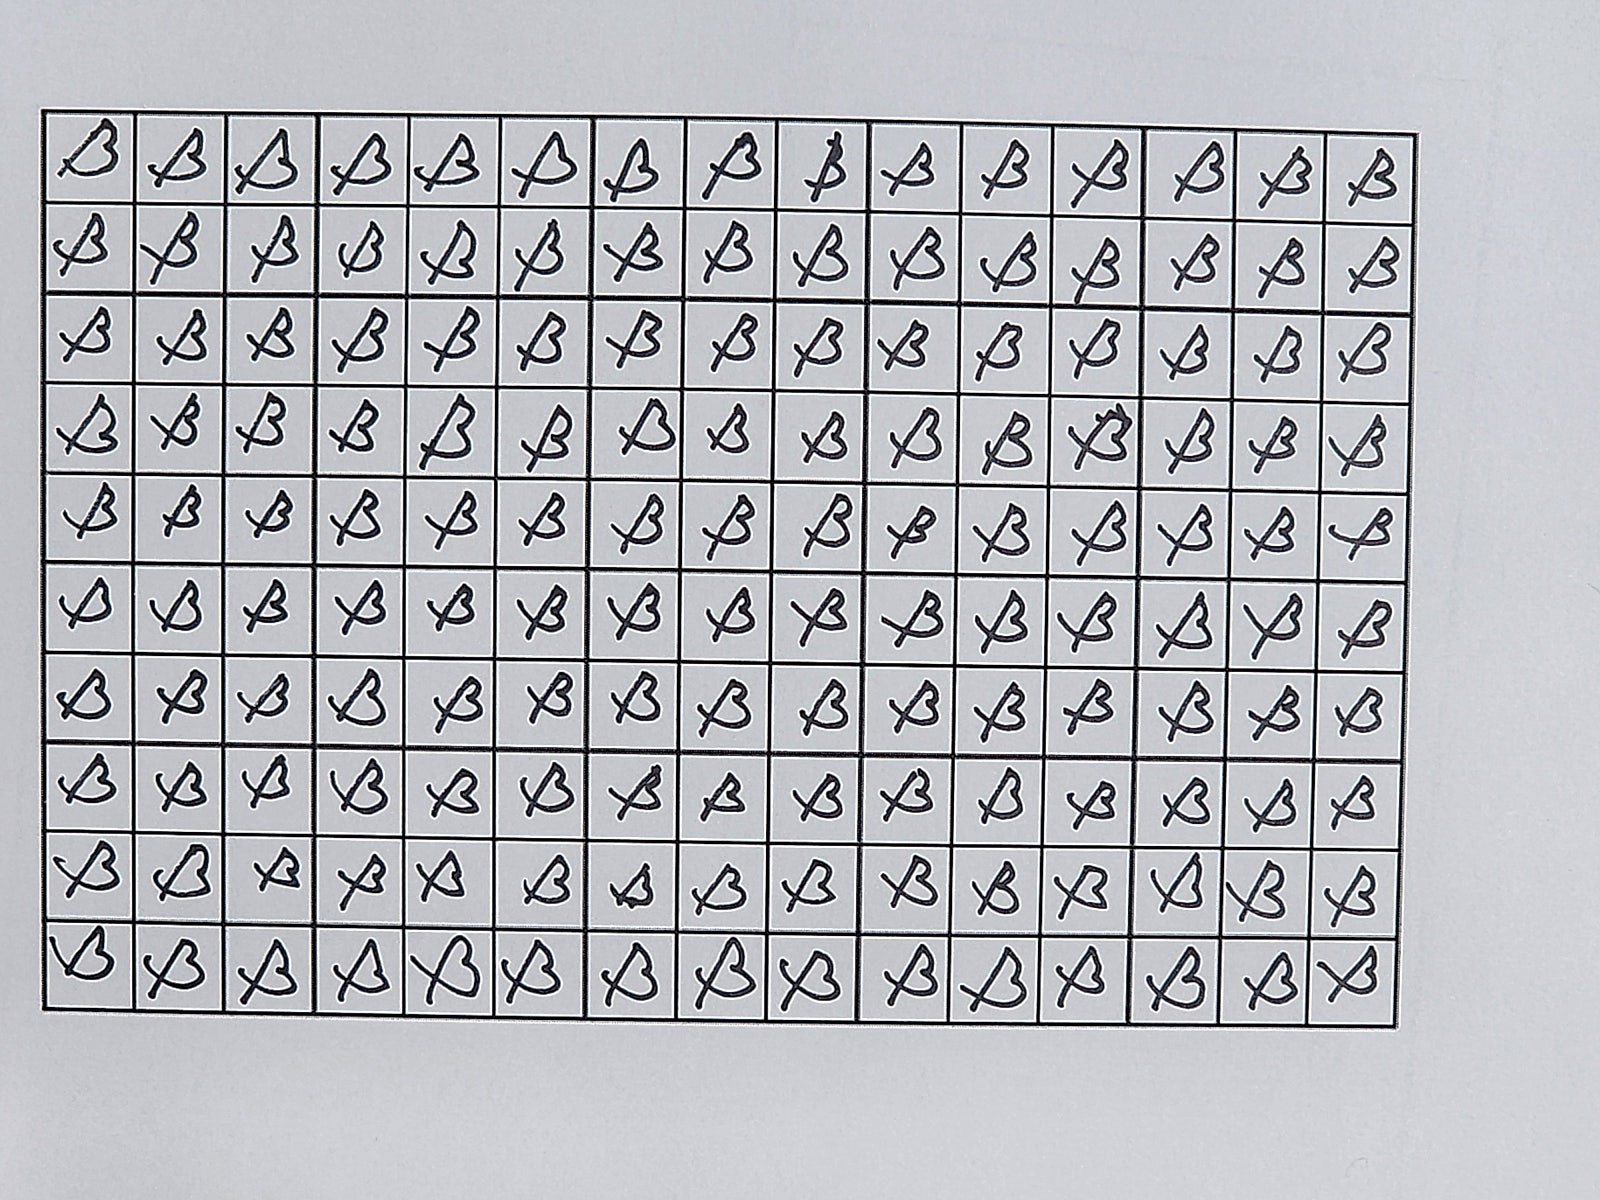 β β β β β β β β β β β β β β β
β β β β β β β β β β β β β β β
β β β β β β β β β β β β β β β
β β β β β β β β β β β β β β β
β β β β β β β β β β β β β β β
β β β β β β β β β β β β β β β
β β β β β β β β β β β β β β β
β β β β β β β β β β β β β β β
β β β β β β β β β β β β β β β
β β β β β β β β β β β β β β β